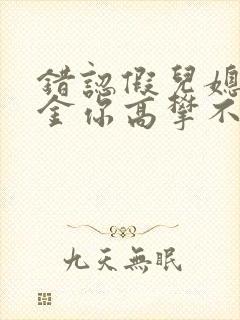 錯認假兒媳
金你高攀不
九天無眠